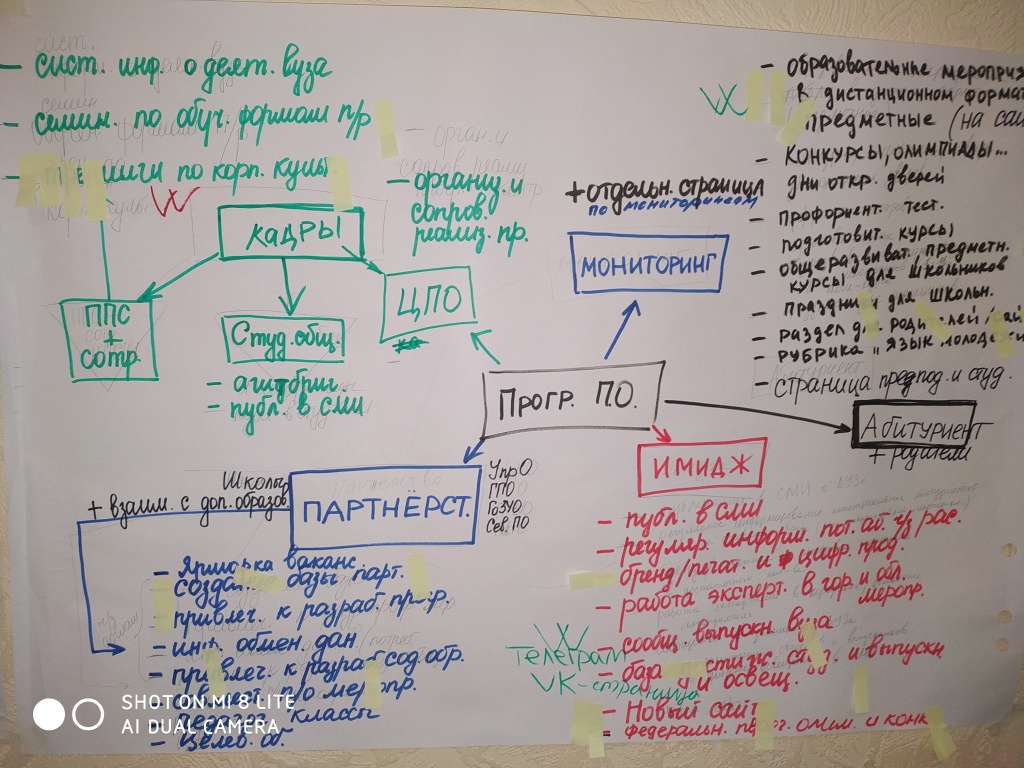 — сист. инф. о деят. вуза
— семин. по обуч. формам п/р
по корп. куль
КАДРЫ
ППС
+
сотр.
Студ. общ.
— агитбриг.
— публ. в СМИ
ЦПО
— организ. и
сопров.
реализ. пр.
+ отдельн. страница
по мониторингам
МОНИТОРИНГ
— образовательные меропри
в дистанционном формат
предметные (на сай
— конкурсы, олимпиады...
дни откр. дверей
— профориент. тест.
— подготовит. курсы
— общеразвиват. предметн.
курсы для школьников
— праздни и для школьн.
— раздел д родителей
— рубрика „язык молодежи
— страница препод. и студ.
Абитуриент
+ родители
Прогр. П.О.
ИМИДЖ
— публ. в СМИ
— регуляр. информ. пот. аб.
бренд/печат. и цифр. прод.
— работа эксперт. в гор. и обл.
меропр.
— сообщ. выпускн. вуза
— база и выпускн
и освещ.
— Новый сайт
— федеральн. олим. и конк
Телеграм
VK-страница
ПАРТНЁРСТ.
Упр О
ГПО
ГОЗУО
Сев. ПО
Школы
+ взаим. с доп. образов.
— Ярмарка ваканс.
созда базы парт.
— привлеч. к разраб. пр
— инф. обмен. дан
— привлеч. к разраб. сод. обр.
п/о меропр.
классы
— целев. об.
SHOT ON MI 8 LITE
AI DUAL CAMERA